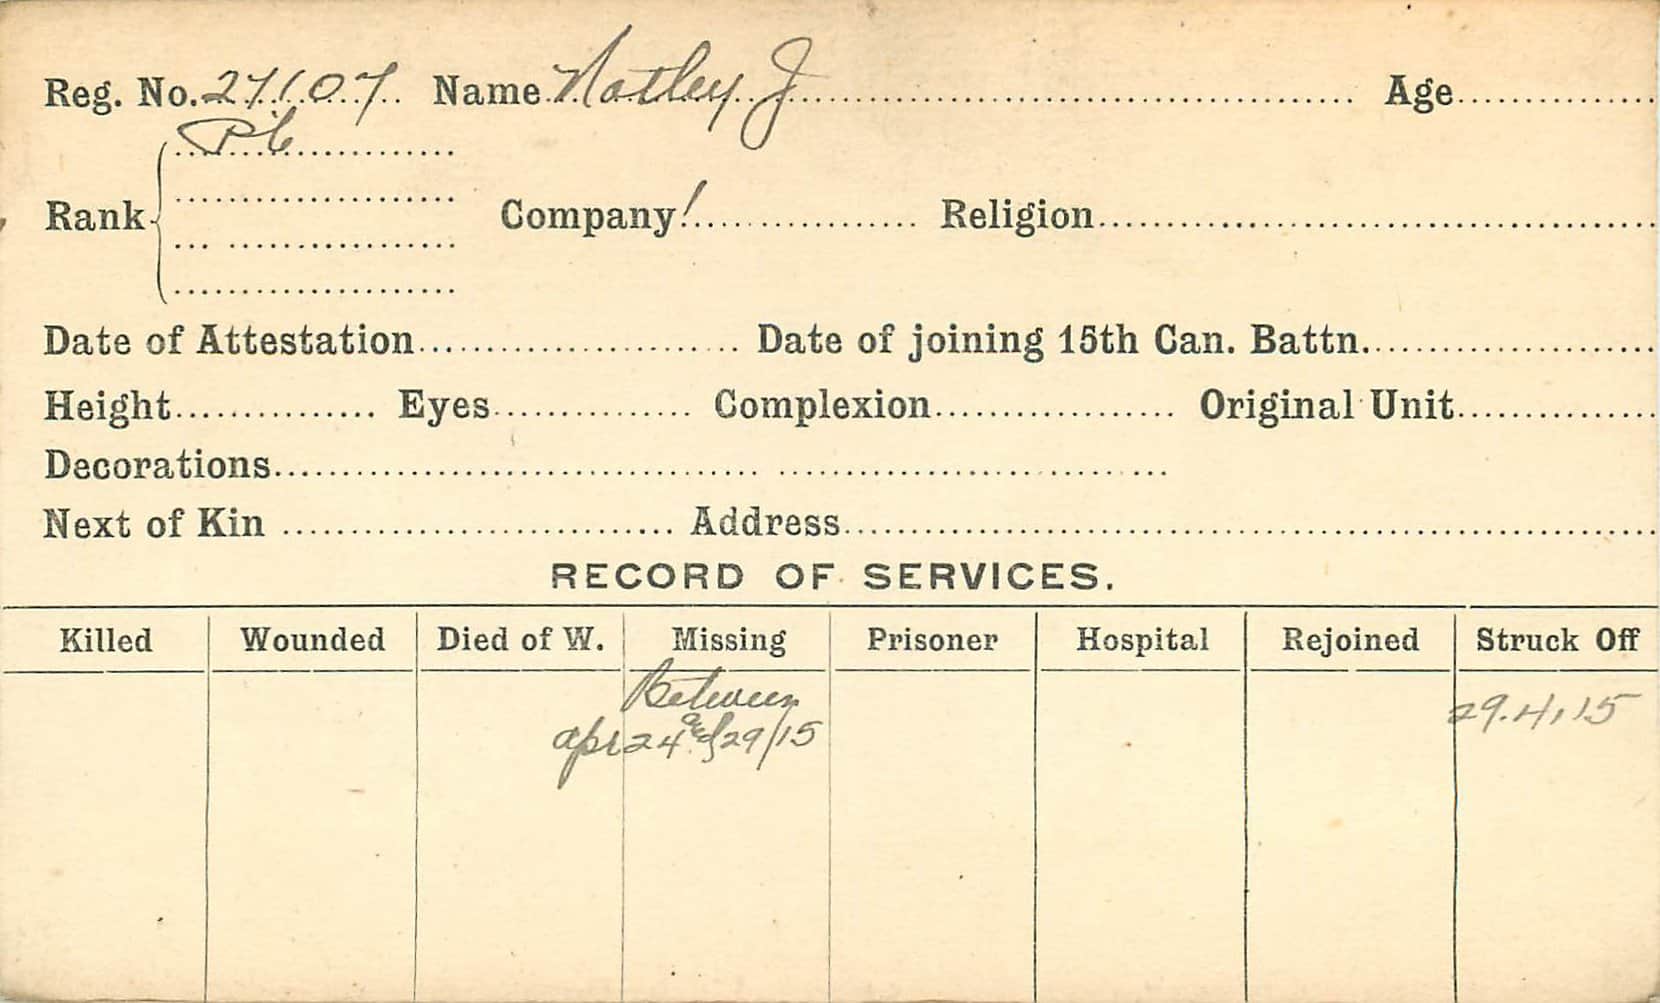 Reg. No. 27107 Name Notley J Age
Pte
Rank Company 1 Religion
Date of Attestation Date of joining 15th Can. Battn.
Height Eyes Complexion Original Unit
Decorations
Next of Kin Address
RECORD OF SERVICES.
Killed Wounded Died of W. Missing Prisoner Hospital Rejoined Struck Off
Between
apr 24 and 29/15 29.4.15